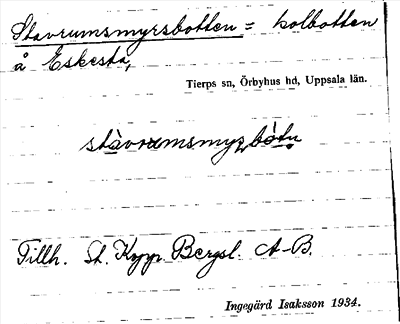 Stavrumsmyrsbotten = kolbotten
å Eskesta,
Tierps sn, Örbyhus hd, Uppsala län.
stàvrumsmyṣbòtn
Tillh. St. Kopp. Bergsl. A-B.
Ingegärd Isaksson 1934.